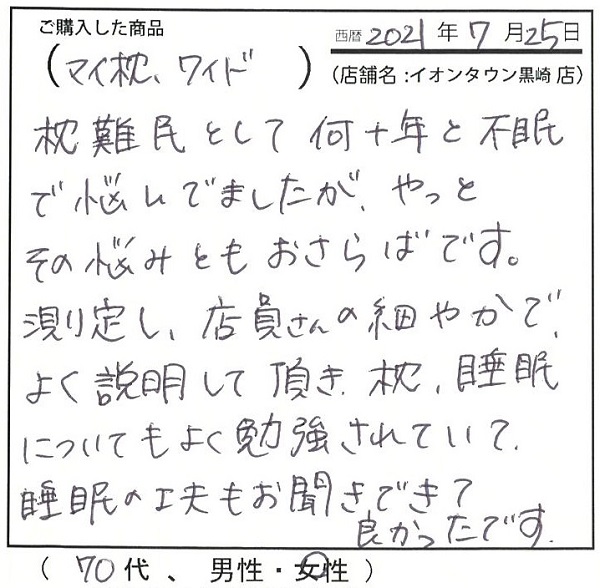 ご購入した商品
西暦 2021 年 7 月 25 日
(マイ枕、ワイド)
(店舗名:イオンタウン黒崎 店)
枕難民として何十年と不眠
で悩んでましたが、やっと
その悩みともおさらばです。
測り定し、店員さんの細やかで、
よく説明して頂き、枕、睡眠
についてもよく勉強されていて、
睡眠の工夫もお聞きできて
良かったです。
( 70代 、 男性・女性 )